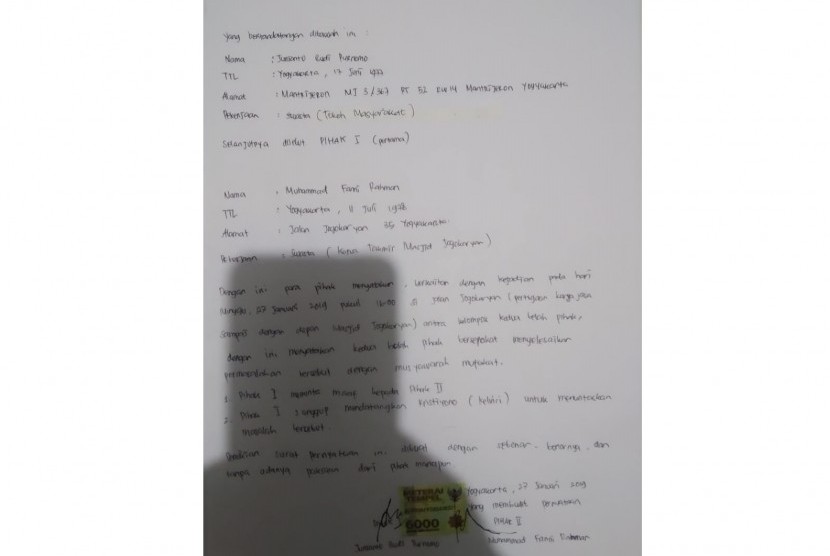 Yang bertandatangan dibawah ini :
Nama : Jusanto Budi Purnomo
TTL : Yogyakarta, 17 Juni 1977
Alamat : Mantrijeron MJ 3/967 RT 52 RW 14 Mantrijeron Yogyakarta
Pekerjaan : swasta (Tokoh Masyarakat)
Selanjutnya disebut PIHAK I (pertama)
Nama : Muhammad Fanni Rahman
TTL : Yogyakarta, 11 Juli
Alamat : Jalan Jogokaryan 35 Yogyakarta
Pekerjaan : Swasta (Ketua Takmir Masjid Jogokaryan)
Dengan ini para pihak menyatakan, berkaitan dengan kejadian pada hari
Minggu, 27 Januari 2019 pukul di jalan Jogokaryan (pertigaan
sampai dengan depan Masjid Jogokaryan) antara kelompok kedua belah pihak,
dengan ini menyatakan kedua belah pihak bersepakat menyelesaikan
permasalahan tersebut dengan musyawarah mufakat.
1. Pihak I meminta maaf kepada Pihak II
2. Pihak I sanggup mendatangkan Kristiyono ( ) untuk menuntaskan
masalah tersebut.
Demikian surat pernyataan ini dibuat dengan sebenar-benarnya, dan
tanpa adanya paksaan dari pihak manapun
Yogyakarta, 27 Januari 2019
yang membuat pernyataan
METERAI
TEMPEL
6000
PIHAK II
Jusanto Budi Purnomo Muhammad Fanni Rahman